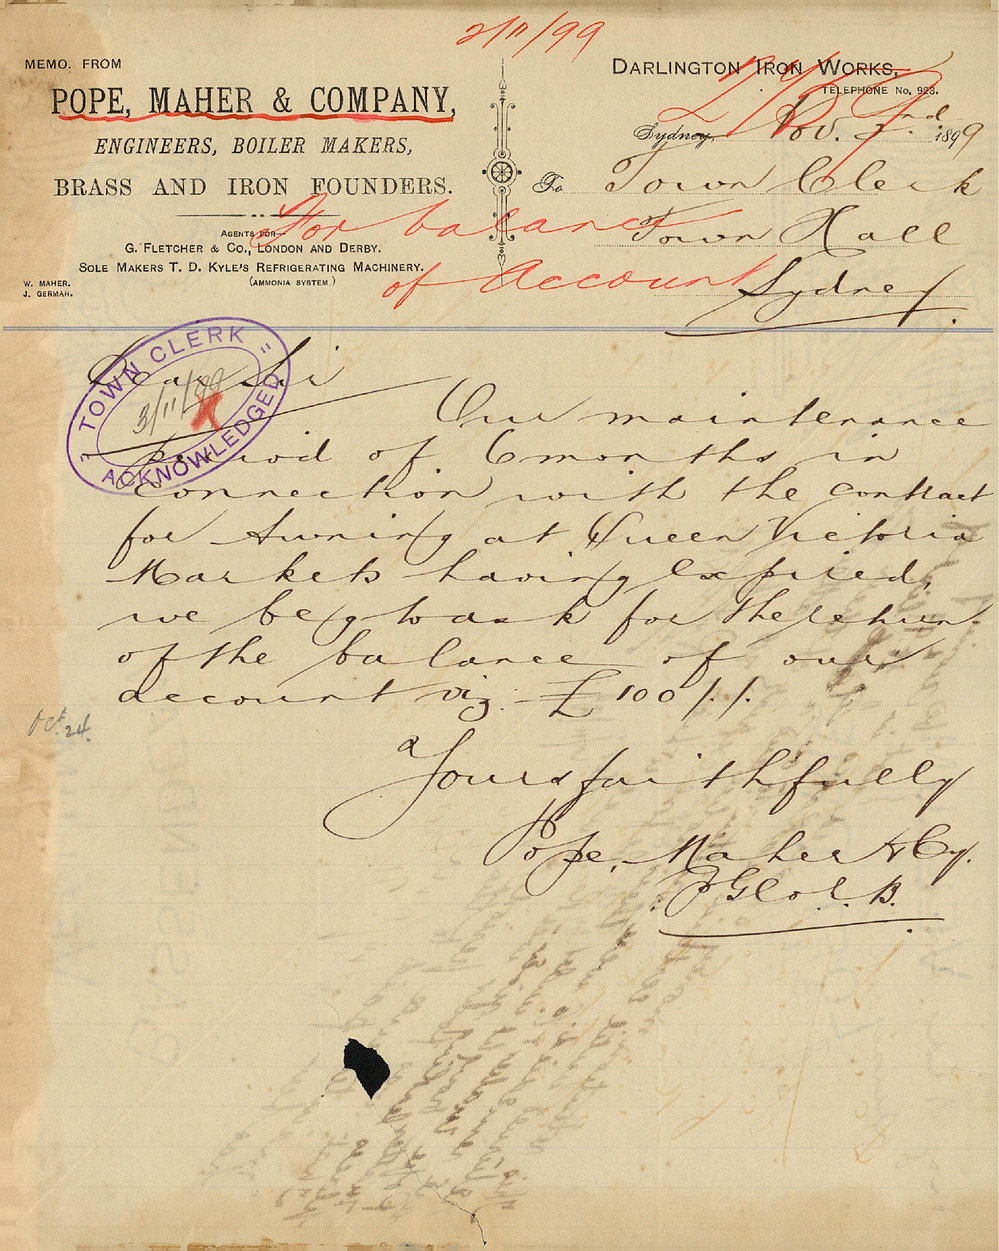 2/11/99
MEMO. FROM
POPE, MAHER & COMPANY,
ENGINEERS, BOILER MAKERS,
BRASS AND IRON FOUNDERS.
AGENTS FOR—
G. FLETCHER & CO., LONDON AND DERBY.
SOLE MAKERS T. D. KYLE'S REFRIGERATING MACHINERY.
(AMMONIA SYSTEM.)
W. MAHER.
J. GERMAN.
DARLINGTON IRON WORKS,
TELEPHONE No. 923.
Sydney, Nov. 2nd 1899
To Town Clerk
Town Hall
Sydney.
For balance
of Account
"TOWN CLERK"
3/11/99
X
ACKNOWLEDGED
Dear Sir
Our maintenance
period of 6 months in
connection with the contract
for Awning at Queen Victoria
Markets having expired,
we beg to ask for the return
of the balance of our
account viz. £100/./.
Oct. 24.
Yours faithfully
Pope, Maher & Cy.